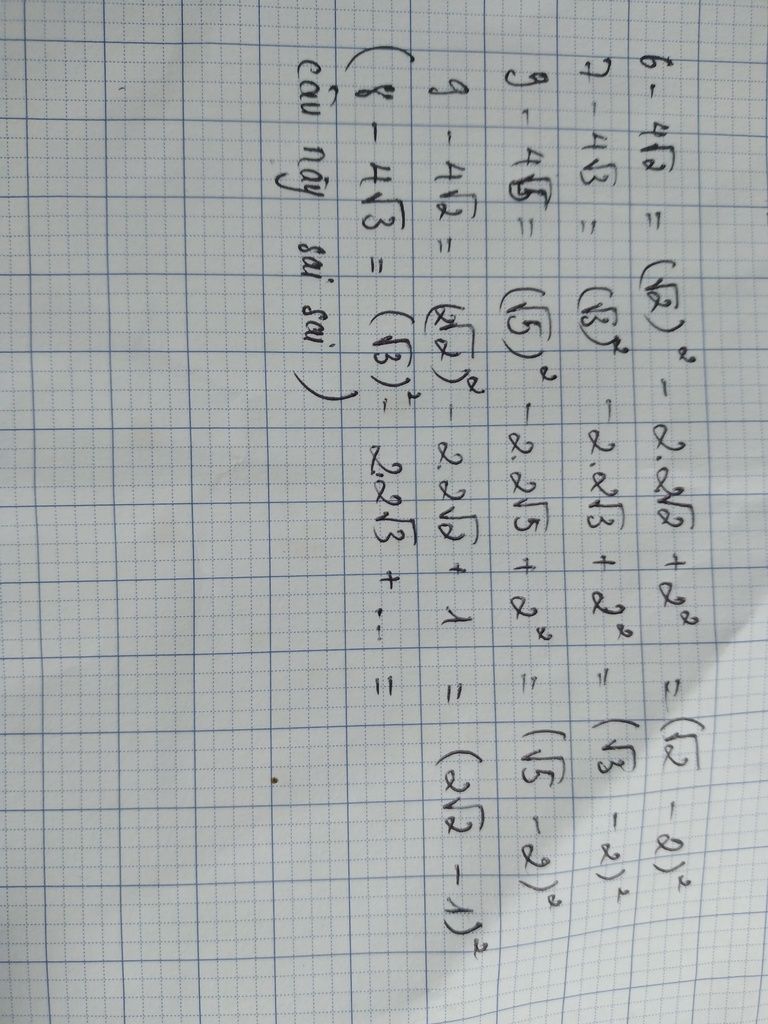 6 - 4√2 = (√2)² - 2.2√2 + 2² = (√2 - 2)²
7 - 4√3 = (√3)² - 2.2√3 + 2² = (√3 - 2)²
9 - 4√5 = (√5)² - 2.2√5 + 2² = (√5 - 2)²
9 - 4√2 = (2√2)² - 2.2√2 + 1 = (2√2 - 1)²
(8 - 4√3 = (√3)² - 2.2√3 + ... =
câu này sai sai)